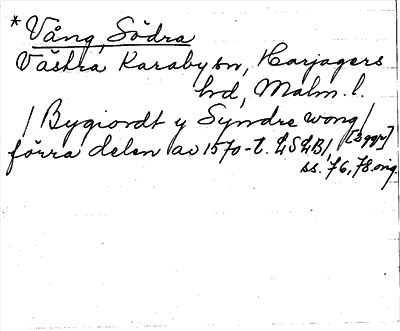 * Vång, Södra
Västra Karaby sn, Harjagers
hd, Malm. l.
/ Bygiordt y Syndre wong /
[3 ggr]
förra delen av 1570-t. LSLB,
ss. 76, 78 orig.